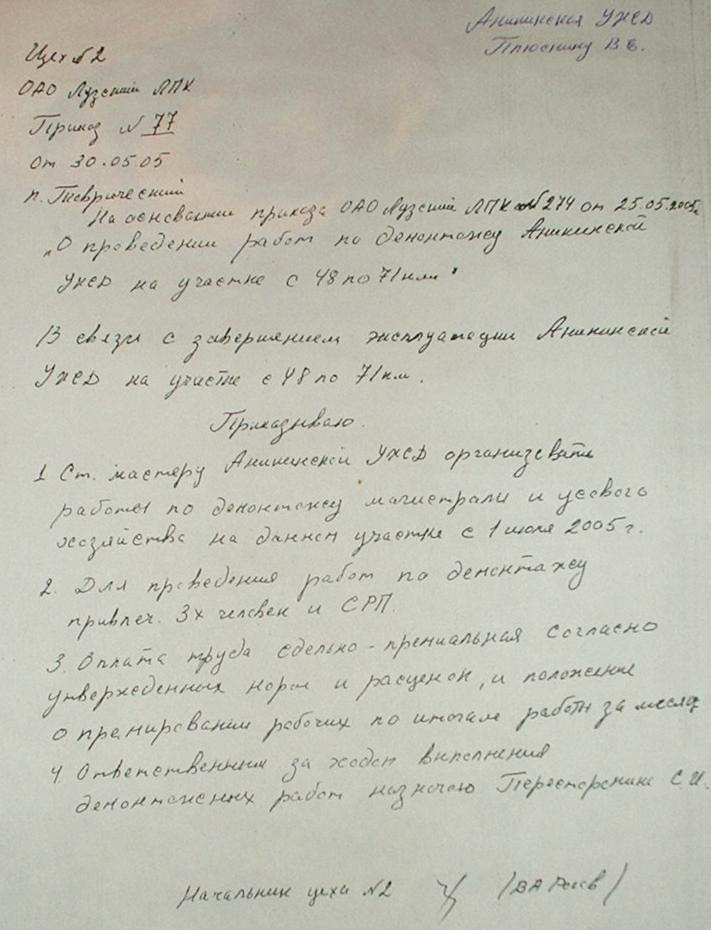 Аникинская УЖД
Плюснину В Е.
Цех №2
ОАО Лузский ЛПК
Приказ № 77
от 30.05.05
п. Таврический
На основании приказа ОАО Лузский ЛПК №274 от 25.05.2005г
„О проведении работ по демонтажу Аникинской
УЖД на участке с 48 по 71 км"
В связи с завершением эксплуатации Аникинской
УЖД на участке с 48 по 71 км.
Приказываю.
1 Ст. мастеру Аникинской УЖД организовать
работы по демонтажу магистрали и усового
хозяйства на данном участке с 1 июля 2005 г.
2. Для проведения работ по демонтажу
привлеч. 3х человек и СРП.
3. Оплата труда сдельно-премиальная согласно
утвержденных норм и расценок, и положение
о премировании рабочих по итогам работы за месяц
4 Ответственным за ходом выполнения
демонтажных работ назначаю Пересторонина С.И.
Начальник цеха №2 (В А)